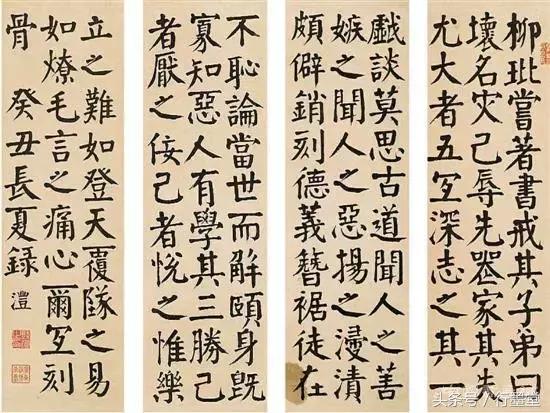 柳玭嘗著書戒其子弟曰
壞名灾己辱先喪家其失
尤大者五冝深志之其一
戲談莫思古道聞人之善
嫉之聞人之惡揚之浸漬
頗僻銷刻德義簪裾徒在
不恥論當世而解頤身既
寡知惡人有學其三勝己
者厭之佞己者悅之惟樂
立之難如登天覆隊之易
如燎毛言之痛心爾冝刻
骨 癸丑長夏錄 澧
头条号／行墨堂